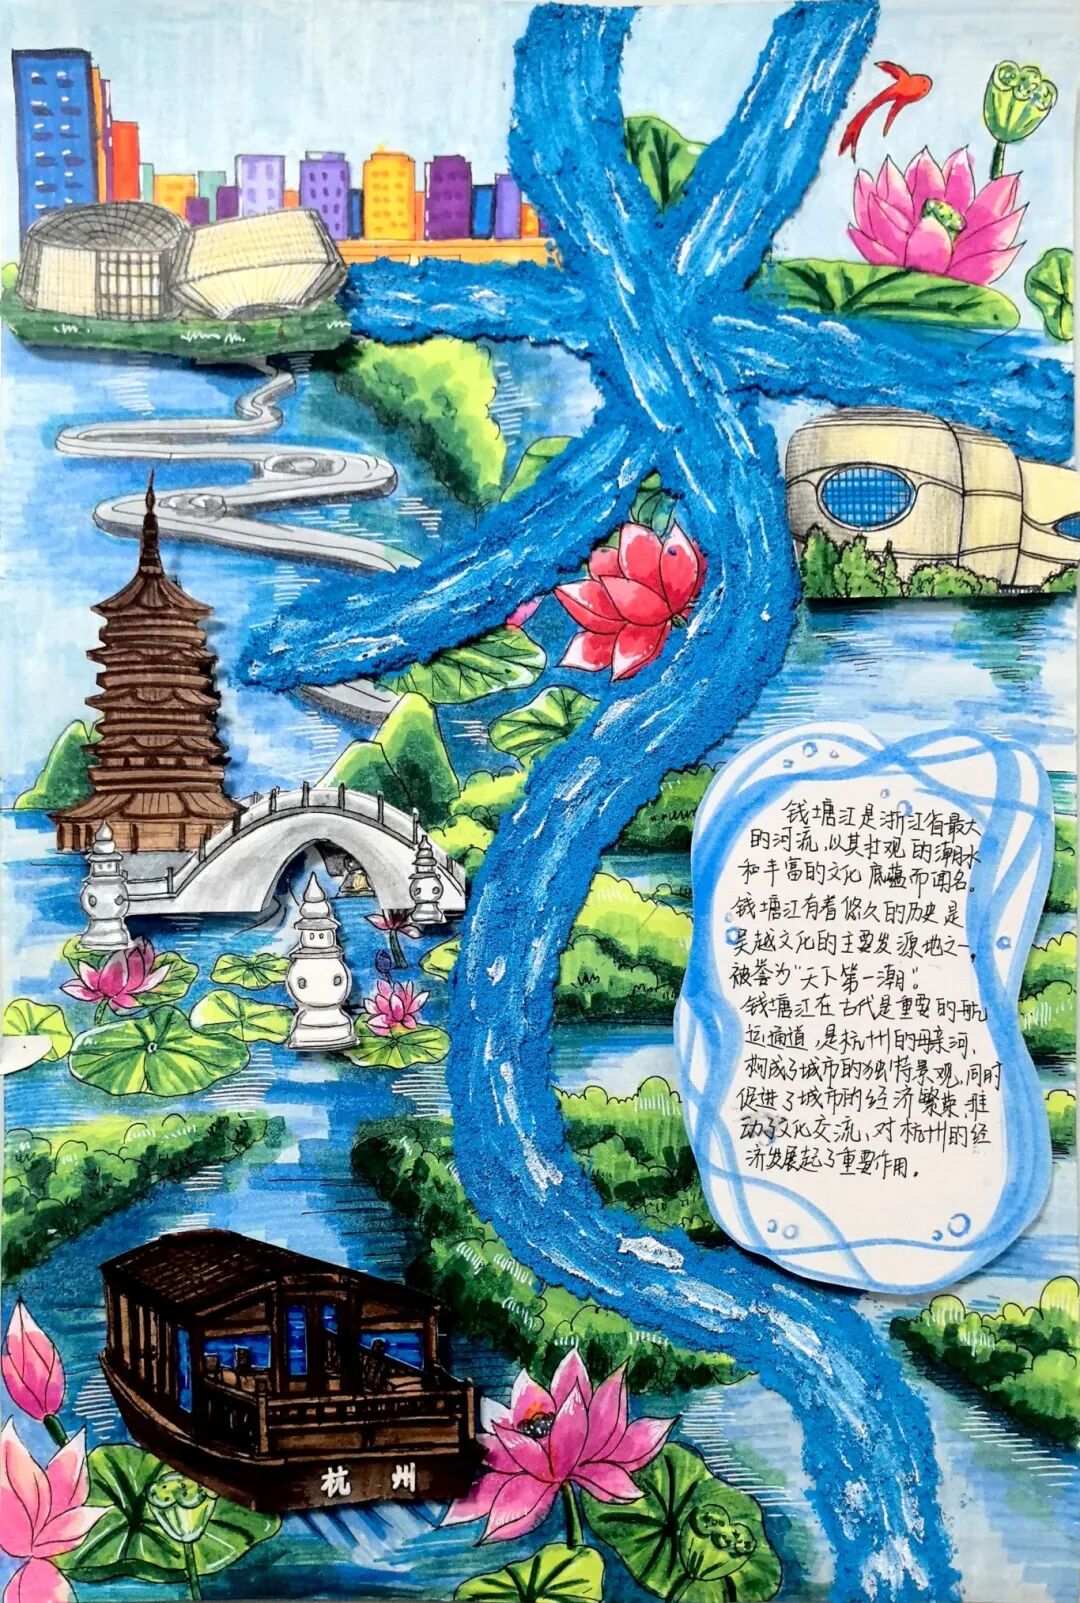 钱塘江是浙江省最大
的河流,以其壮观的潮水
和丰富的文化底蕴而闻名。
钱塘江有着悠久的历史是
吴越文化的主要发源地之一,
被誉为"天下第一潮"。
钱塘江在古代是重要的航
运通道,是杭州的母亲河、
构成了城市的独特景观,同时
促进了城市的经济繁荣、推
动了文化交流、对杭州的经
济发展起了重要作用。
杭州